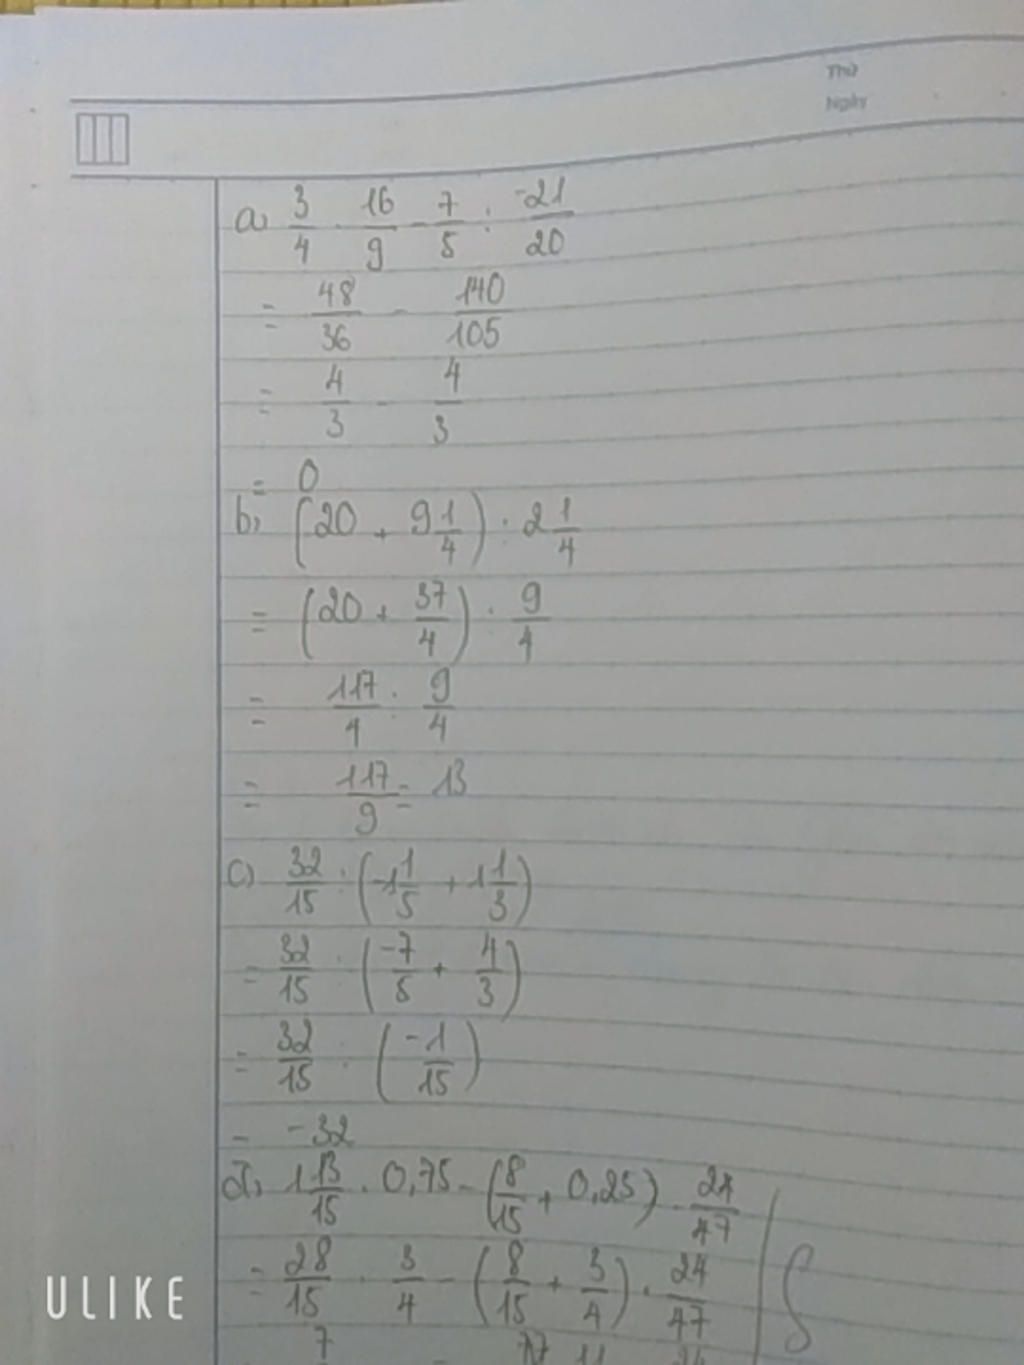 Thứ
Ngày
a, 3/4 . 16/9 - 7/5 : -21/20
= 48/36 - 140/105
= 4/3 - 4/3
= 0
b, (20 + 9 1/4) : 2 1/4
= (20 + 37/4) : 9/4
= 117/4 : 9/4
= 117/9 = 13
c) 32/15 : (-1 1/5 + 1 1/3)
= 32/15 : (-7/5 + 4/3)
= 32/15 : (-1/15)
= -32
d, 1 13/15 . 0,75 - (8/15 + 0,25) . 24/47
= 28/15 . 3/4 - (8/15 + 3/4) . 24/47
7
ULIKE